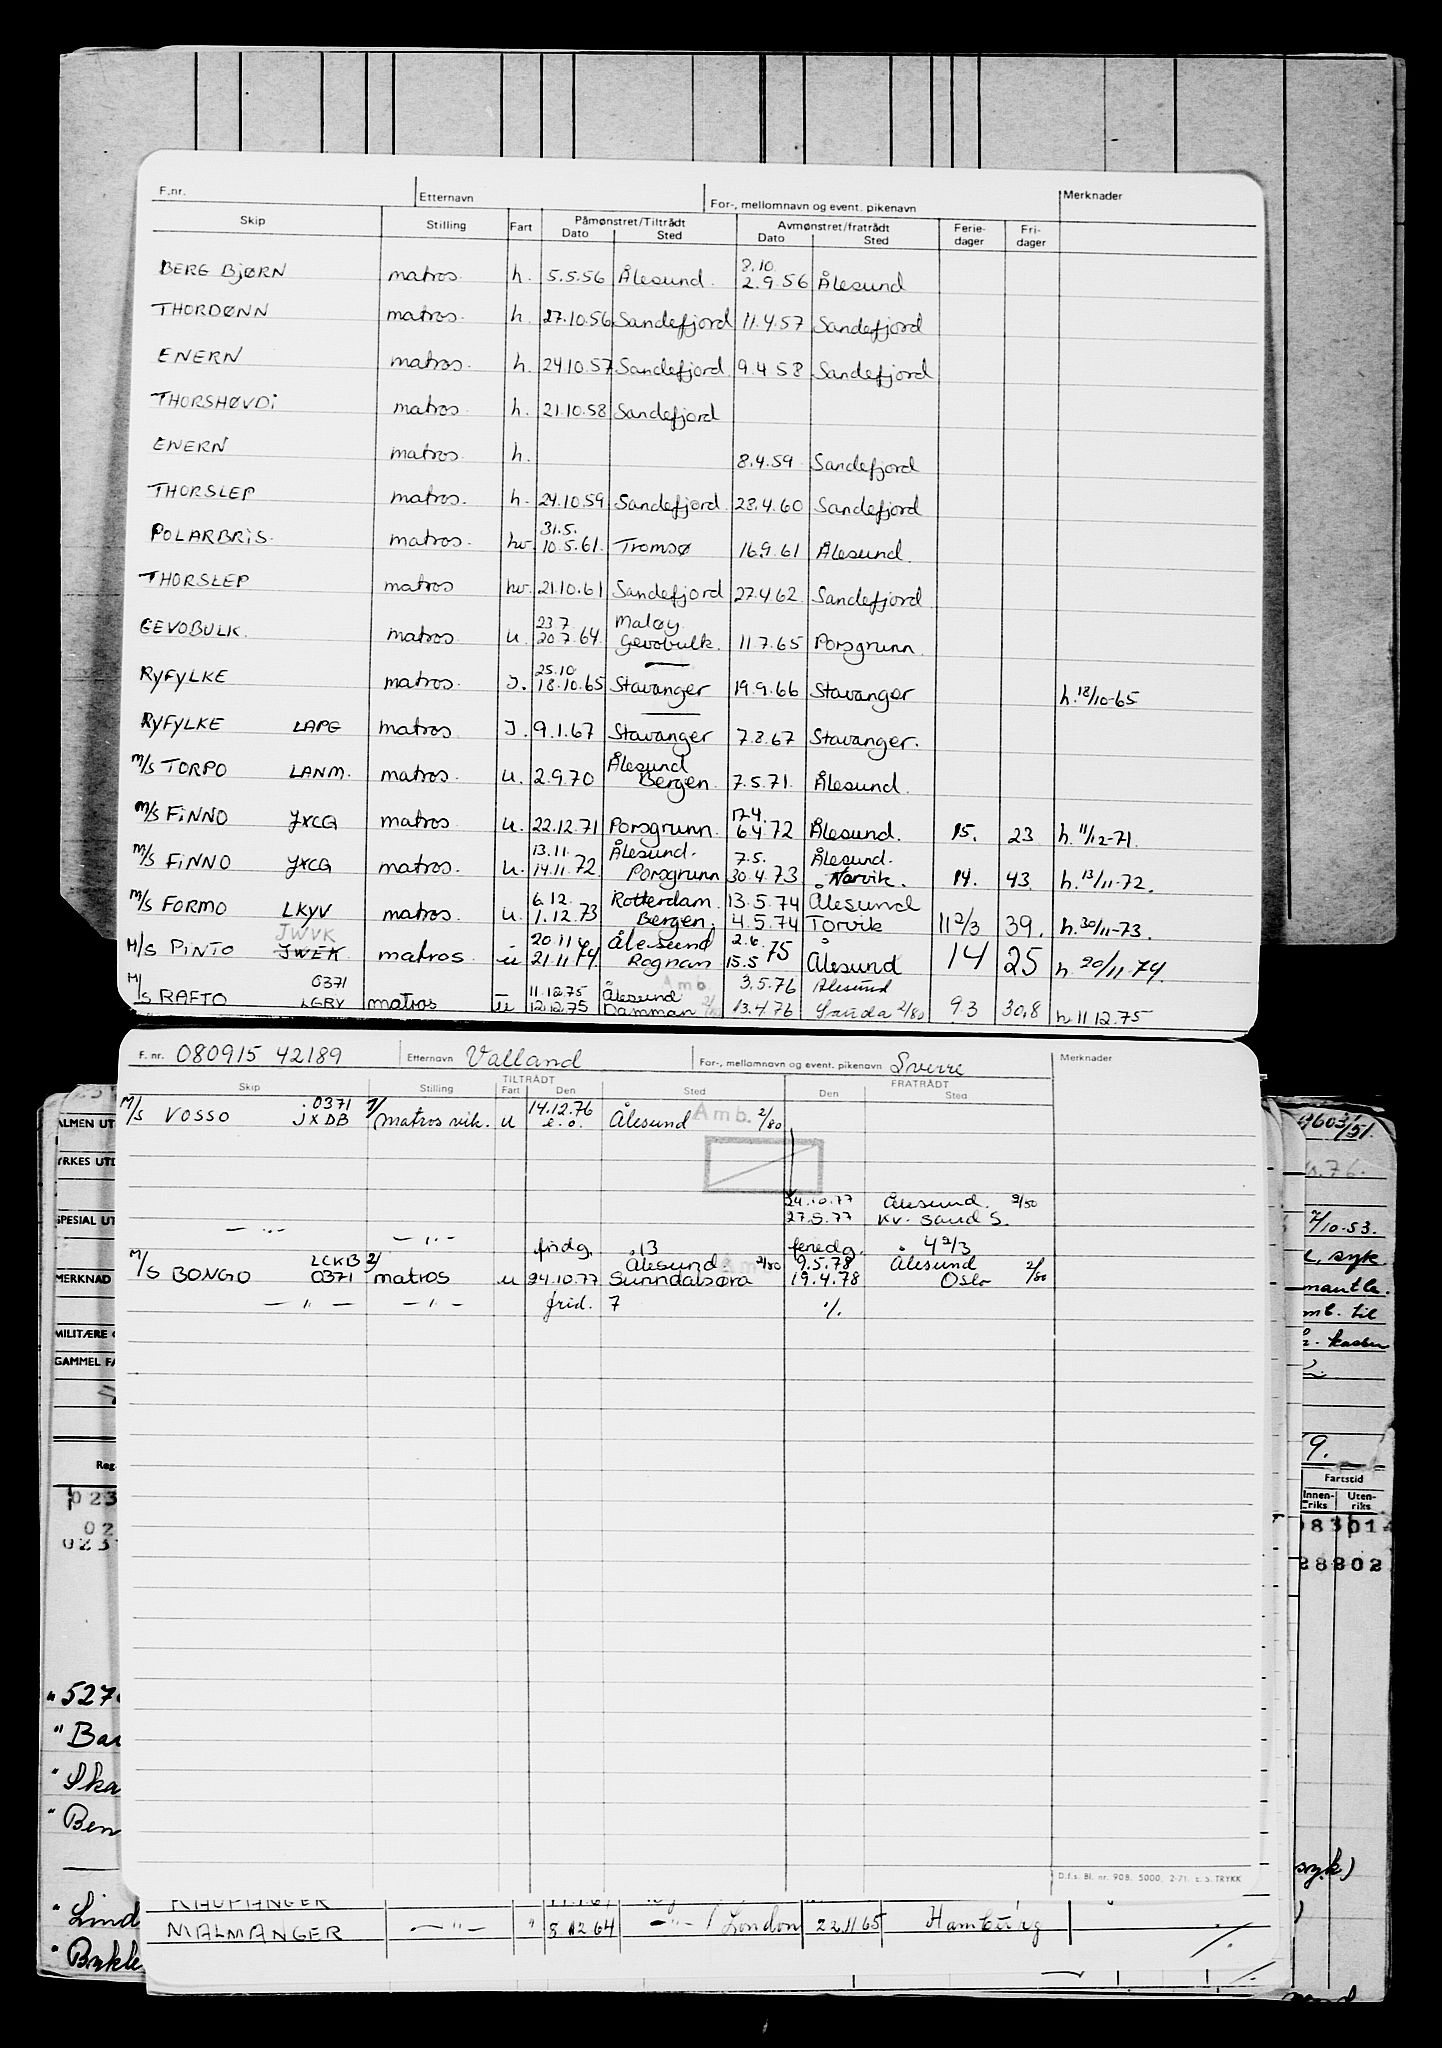 F.nr. Etternavn For-, mellomnavn og event. pikenavn Merknader
Skip Stilling Fart Påmønstret/Tiltrådt Avmønstret/fratrådt Ferie-dager Fri-dager
Dato Sted Dato Sted
BERG BJØRN matros. h. 5.5.56 Ålesund. 2.9.56 Ålesund
THORDØNN matros. h. 27.10.56 Sandefjord 11.4.57 Sandefjord
ENERN matros. h. 24.10.57 Sandefjord. 9.4.58 Sandefjord
THORSHØVDI matros. h. 21.10.58 Sandefjord
ENERN matros. h. 8.4.59 Sandefjord
THORSLEP matros. h. 24.10.59 Sandefjord. 23.4.60 Sandefjord
31.5.
POLARBRIS. matros. hv. 10.5.61. Tromsø 16.9.61 Ålesund.
THORSLEP matros hv. 21.10.61 Sandefjord 27.4.62 Sandefjord
23.7 Måløy
GEVOBULK. matros. u. 20.7.64 Gevobulk. 11.7.65 Porsgrunn.
25.10
RYFYLKE matros. J. 18.10.65 Stavanger 19.9.66 Stavanger h. 18/10-65
RYFYLKE LAPG matros J. 9.1.67 Stavanger 7.8.67 Stavanger.
Ålesund
M/S TORPO LANM. matros. u. 2.9.70 Bergen. 7.5.71. Ålesund.
17.4.
M/S FINNO JXCG matros u. 22.12.71 Porsgrunn. 6.4.72 Ålesund. 15. 23 h. 11/12-71.
13.11. Ålesund. 7.5. Ålesund.
M/S FINNO JXCG matros. u. 14.11.72 Porsgrunn 30.4.73 Narvik. 14. 43 h. 13/11-72.
6.12. Rotterdam. 13.5.74 Ålesund
M/S FORMO LKYV matros. u. 1.12.73 Bergen. 4.5.74 Torvik 11 2/3 39. h. 30/11-73.
JWVK 20.11 Ålesund 2.6.
M/S PINTO JWEK matros u 21.11.74 Rognan 15.5.75 Ålesund 14 25 h. 20/11-74.
0371 11.12.75 Ålesund Amb. 3.5.76 Ålesund
M/S RAFTO LGRY matros u 12.12.75 Damman 2/80 13.4.76 Sauda 2/80 9.3 30,8 h. 11.12.75
F. nr. 080915 42189 Etternavn Valland For-, mellomnavn og event. pikenavn Sverre Merknader
Skip Stilling TILTRÅDT FRATRÅDT
Fart Den Sted Den Sted
0371 14.12.76
M/S VOSSO JXDB matros vik. u e.o. Ålesund Amb. 2/80
24.10.77 Ålesund. 2/80
27.5.77 Kv. sand S.
— " — — " — fridg. 13 feriedg. 4 2/3
LCKB Ålesund 2/80 9.5.78 Ålesund
M/S BONGO 0371 matros u 24.10.77 Sunndalsøra 19.4.78 Oslo 2/80
— " — — " — frid. 7 %
D.f.s. Bl. nr. 908. 5000. 2-71. E.S. TRYKK
KAUPANGER
MALMANGER — " — " 3.12.64 — " — / London 22.11.65 Hamburg
ALMEN UT
YRKES UTD
SPESIAL UT
MERKNAD
MILITÆRE
GAMMEL FA
Reg.
023
02
023
" 527
" Ba
" Ska
" Ben
" Lind
4603/51.
7/10-53.
syk
til
9.
Fartstid
Innen-riks Uten-riks
08301
28802
syk)